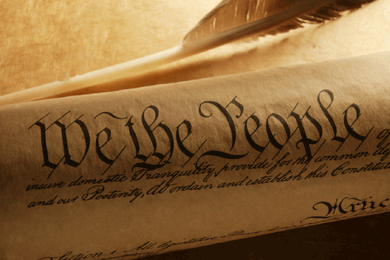 We the People
insure domestic Tranquility, provide for the common
and our Posterity, do ordain and establish this Constitution
Artic